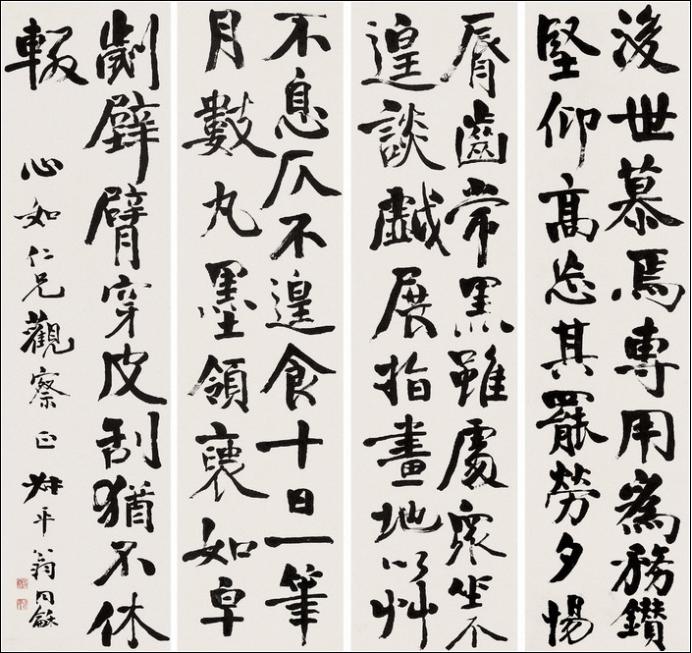 後世慕焉專用為務鑽
堅仰高忘其罷勞夕惕
脣齒常黑雖處眾坐不
遑談戲展指畫地以艸
不息仄不遑食十日一筆
月數丸墨領褎如皁
劌壁臂穿皮刮猶不休
輟
心如仁兄觀察正 叔平翁同龢